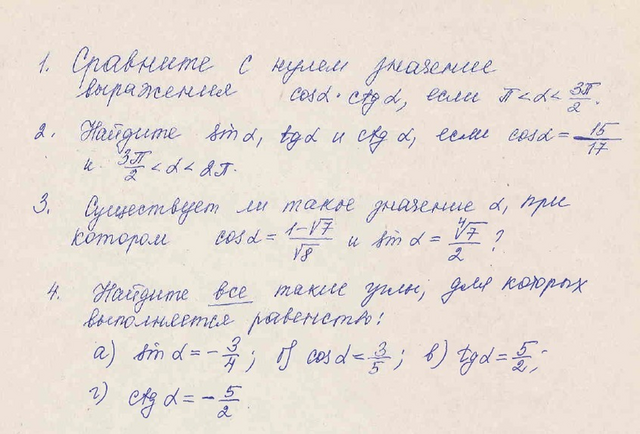 1. Сравните с нулем значение
выражения cosα · ctgα, если π < α < 3π/2.
2. Найдите sinα, tgα и ctgα, если cosα = 15/17
и 3π/2 < α < 2π.
3. Существует ли такое значение α, при
котором cosα = (1-√7)/√8 и sinα = ∜7/2?
4. Найдите все такие углы, для которых
выполняется равенство:
а) sinα = -3/4; б) cosα = 3/5; в) tgα = 5/2;
г) ctgα = -5/2